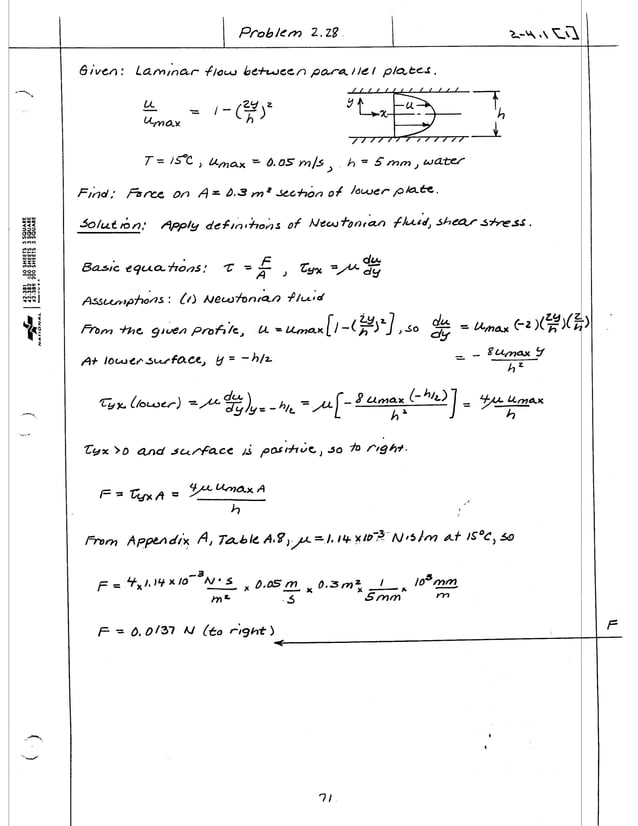 Problem 2.28
2-4.1 [1]
Given: Laminar flow between parallel plates.
u/umax = 1 - (2y/h)²
y u x h
T = 15°C, umax = 0.05 m/s, h = 5 mm, water
Find: Force on A = 0.3 m² section of lower plate.
Solution: Apply definitions of Newtonian fluid, shear stress.
Basic equations: τ = F/A, τyx = μ du/dy
Assumptions: (1) Newtonian fluid
From the given profile, u = umax[1 - (2y/h)²], so du/dy = umax(-2)(2y/h)(2/h)
At lower surface, y = -h/2 = - 8umax y/h²
τyx (lower) = μ du/dy)y = -h/2 = μ[- 8umax(-h/2)/h²] = 4μumax/h
τyx > 0 and surface is positive, so to right.
F = τyx A = 4μumax A/h
From Appendix A, Table A.8, μ = 1.14 × 10⁻³ N·s/m at 15°C, so
F = 4 × 1.14 × 10⁻³ N·s/m² × 0.05 m/s × 0.3 m² × 1/5mm × 10³ mm/m
F = 0.0137 N (to right)
F
NATIONAL
71